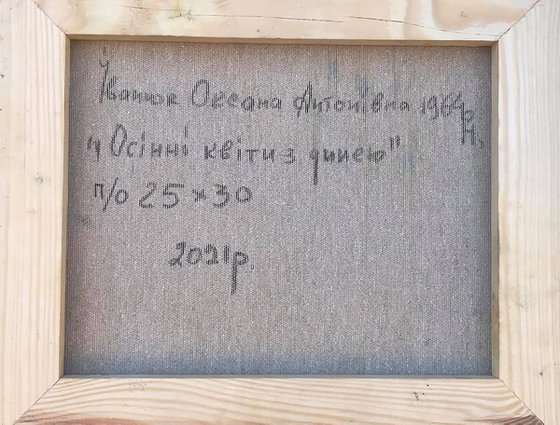 Іванюк Оксана Антонівна 1964р
н.
"Осінні квіти з динею"
п/о 25×30
2021р.